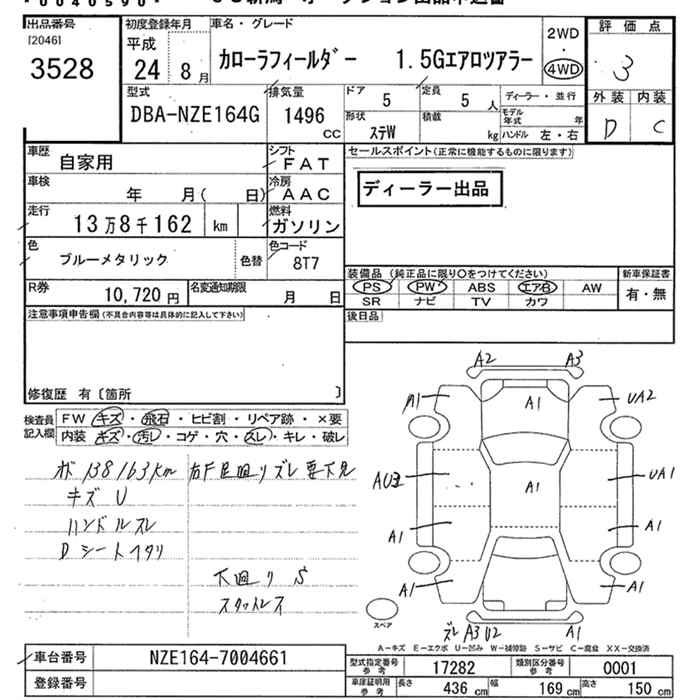 出品番号 初度登録年月 車名・グレード 2WD 評価点
[2046] 平成 ・
3528 24 年 8 月 カローラフィールダー 1.5Gエアロツアラー 4WD 3
型式 排気量 ドア 定員 ディーラー・並行 外装 内装
DBA-NZE164G 1496 cc 5 5 人 モデル年式 年 D C
形状 積載
ステW kg ハンドル 左・右
車歴 シフト セールスポイント(正常に機能するものに限ります)
自家用 FAT
車検 冷房 ディーラー出品
年 月( 日) AAC
走行 燃料
13万8千162 km ガソリン
色 色コード
ブルーメタリック 色替 8T7 装備品 (純正品に限り○をつけてください) 新車保証書
R券 名変通知期限 PS PW ABS エアB AW 有・無
10,720 円 月 日 SR ナビ TV カワ
注意事項申告欄(不具合内容等は具体的に記入して下さい) 後日品
修復歴 有〔箇所 〕
A2 A3
検査員 FW・キズ・飛石・ヒビ割・リペア跡・×要 A1 A1 UA2
記入欄 内装・キズ・汚レ・コゲ・穴・スレ・キレ・破レ
138163km 右F足廻りズレ要下見
キズ U A1 UA1
ハンドルスレ A1 A1
Dシートヘタリ
下廻りS A1 A1
スタットレス スペア
ズレ A3 U2 A1
A-キズ E-エクボ U-凹み W-補修跡 S-サビ C-腐食 XX-交換済
車台番号 NZE164-7004661 型式指定番号 参考 17282 類別区分番号 参考 0001
登録番号 車庫証明用 参考 長さ 436 cm 幅 169 cm 高さ 150 cm